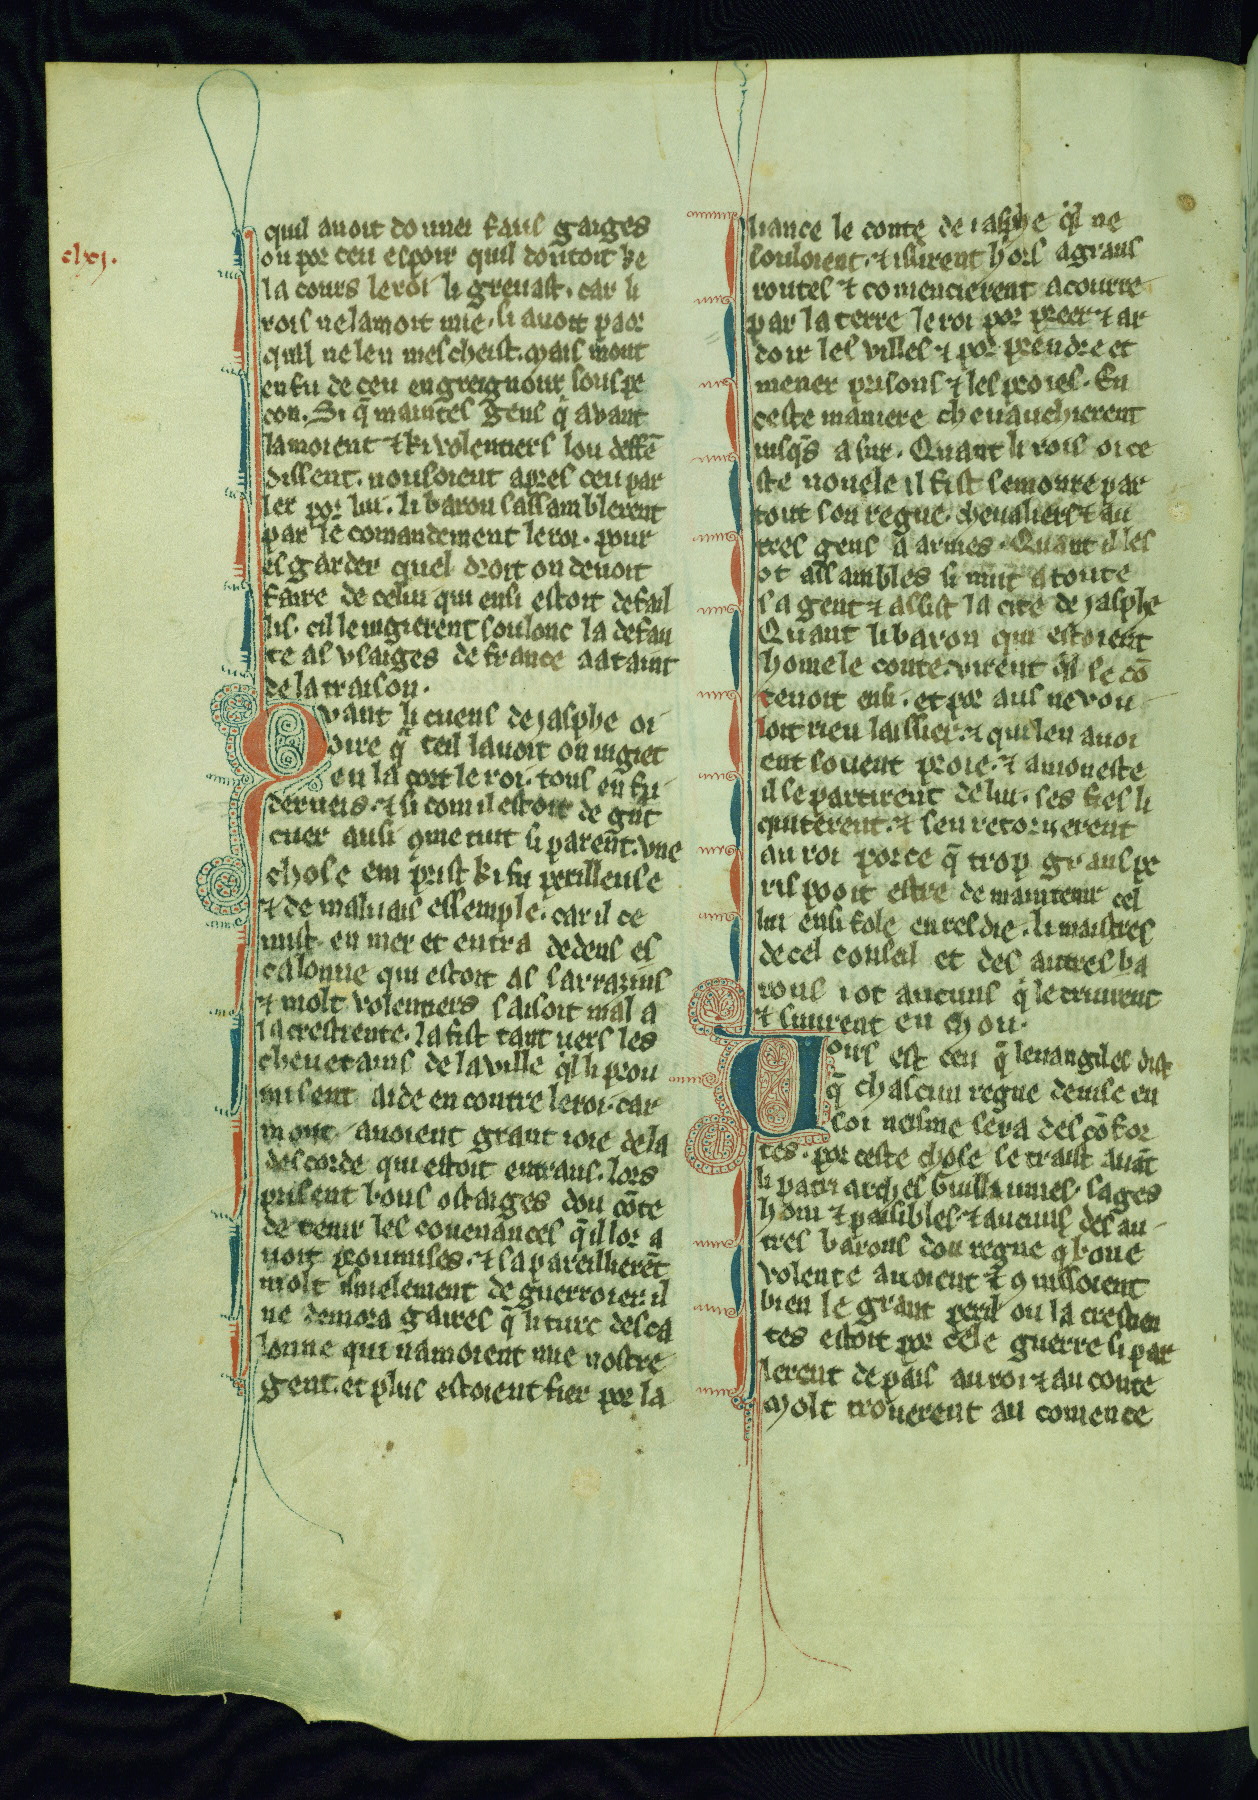 clxj.
quil auoit donnei faus gaiges
ou por ceu espoir quil doutoit ke
la cours le roi li greuast. car li
rois ne lamoit mie. si auoit paor
quil ne len mescheist. mais mont
en fu de ceu en greignour souspe
con. Si q̃ maintes gens q̃ avant
lamoient ⁊ ki volentiers lou deffẽ
dissent. nousoient apres ceu par
ler por lui. li baron sassamblerent
par le comandement le roi. pour
esgarder quel droit on deuoit
faire de celui qui ensi estoit defail
lis. cil le iugierent soulonc la defau
te as vsaiges de france aataint
de la traison.
Quant li cuens de jasphe oi
dire q̃ teil lauoit on iugiet
en la cort le roi. tous en fu
derueis. ⁊ si com il estoit de gñt
cuer ausi 9me tuit si parent. vne
chose em prist ki fu perilleuse
⁊ de maluais essemple. car il ce
mist en mer et entra dedens es
calonne qui estoit as sarrazins
⁊ molt volentiers faisoit mal a
la crestiente. la fist tant uers les
cheuetains de la ville q̃l li prou
misent aide en contre le roi. car
mont auoient grant ioie de la
descorde qui estoit entraus. lors
prisent bons ostaiges dou cõte
de tenir les couenances q̃il lor a
uoit proumises. ⁊ sapareillierẽt
molt isnielement de guerroier. il
ne demora gaires q̃ li turc desca
lonne qui namoient mie nostre
gent. et plus estoient fier por la
liance le conte de iasphe q̃l ne
souloient. ⁊ issirent hors a grans
routes ⁊ comencierent a courre
par la terre le roi por preer ⁊ ar
doir les villes ⁊ por prendre et
mener prisons ⁊ les proies. En
ceste maniere cheuauchierent
iusq̃s a sur. Quant li rois oi ce
ste nouele il fist semonre par
tout son regne. cheualiers ⁊ au
tres gens a armes. Quant il les
ot assambles si mut a toute
sa gent ⁊ assist la cite de jasphe
Quant li baron qui estoient
home le conte. virent q̃l se cõ
tenoit ensi. et por aus ne vou
loit rien laissier. ⁊ qui len auoi
ent souent proie. ⁊ amoneste
il se partirent de lui. ses fies li
quiterent. ⁊ sen retornerent
au roi por ce q̃ trop grans pe
ris pooit estre de maintenir cel
lui ensi fole enresdie. li maistres
de cel conseil et des autres ba
rons i ot aucuns q̃ le truurent
⁊ siurent en
Uoirs est ceu q̃ leuangiles dist
q̃ chascun regne deuise en
soi meisme sera descõfor
tes. por ceste chose se traist auãt
li patriarches Guillaumes. sages
hom ⁊ paisibles. ⁊ aucuns des au
tres barons dou regne q̃ bone
volente auoient ⁊ 9nissoient
bien le grant peril ou la crestien
tes estoit por cele guerre si par
lerent de pais au roi ⁊ au conte
Molt trouerent au comence